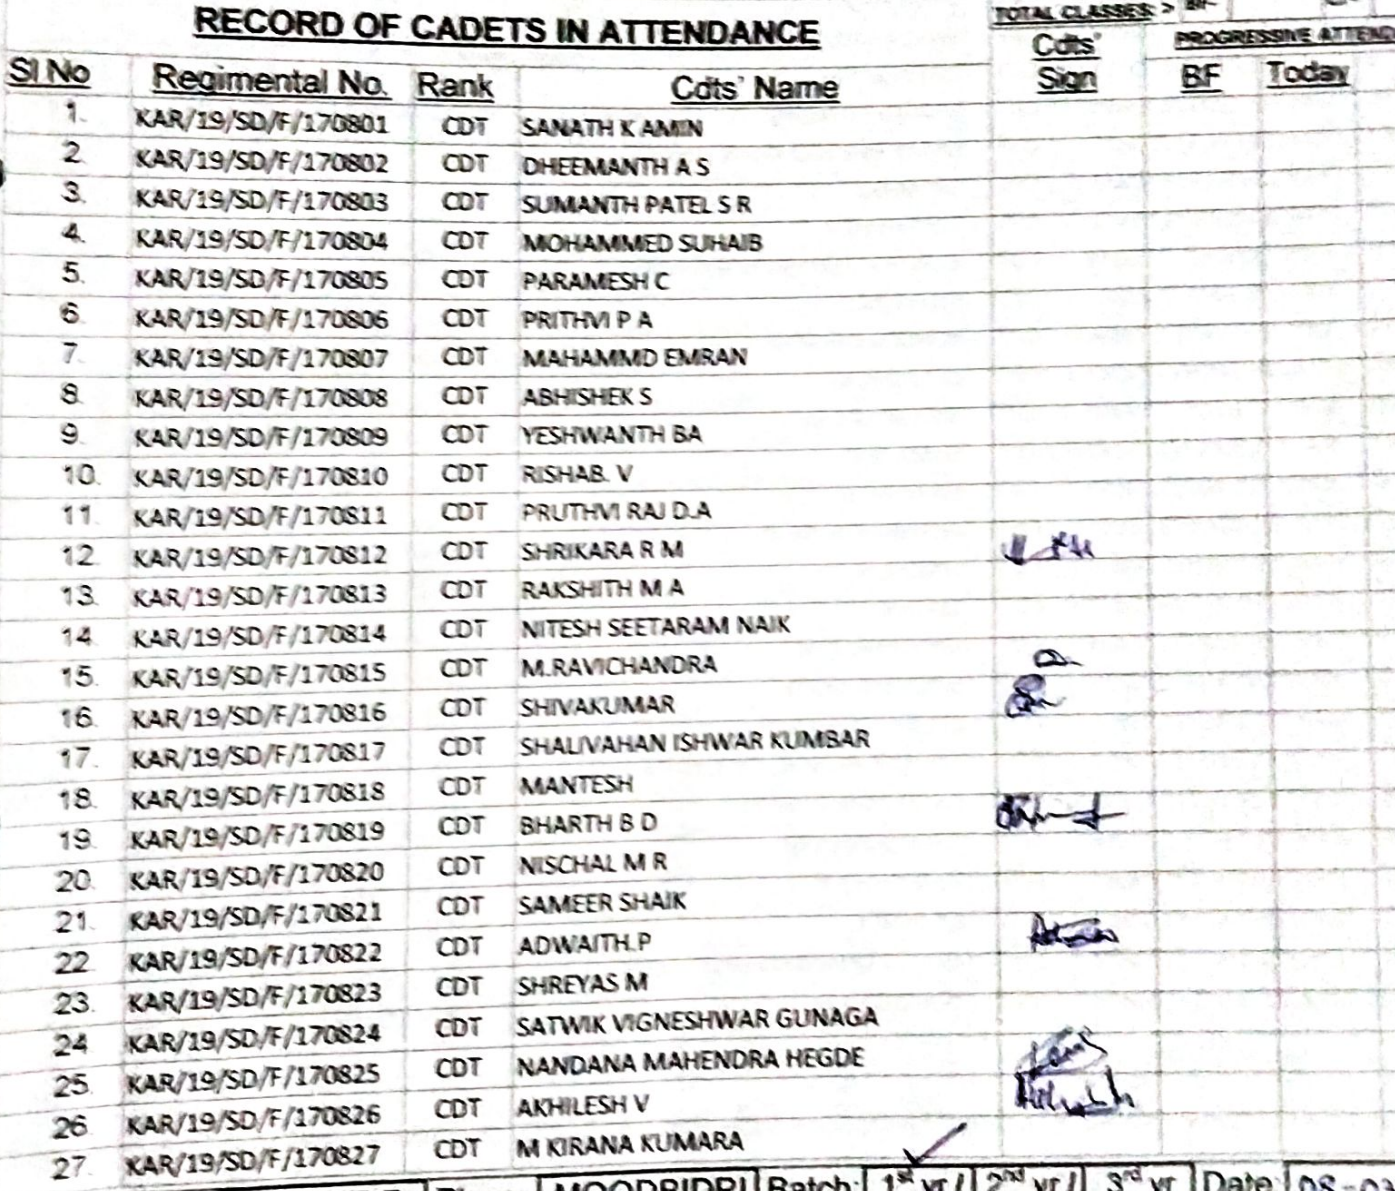 RECORD OF CADETS IN ATTENDANCE
TOTAL CLASSES > BF
Cdts' Sign PROGRESSIVE
Sl No Regimental No. Rank Cdts' Name BF Today
1. KAR/19/SD/F/170801 CDT SANATH K AMIN
2. KAR/19/SD/F/170802 CDT DHEEMANTH A S
3. KAR/19/SD/F/170803 CDT SUMANTH PATEL S R
4. KAR/19/SD/F/170804 CDT MOHAMMED SUHAIB
5. KAR/19/SD/F/170805 CDT PARAMESH C
6. KAR/19/SD/F/170806 CDT PRITHVI P A
7. KAR/19/SD/F/170807 CDT MAHAMMD EMRAN
8. KAR/19/SD/F/170808 CDT ABHISHEK S
9. KAR/19/SD/F/170809 CDT YESHWANTH BA
10. KAR/19/SD/F/170810 CDT RISHAB. V
11. KAR/19/SD/F/170811 CDT PRUTHVI RAJ D.A
12. KAR/19/SD/F/170812 CDT SHRIKARA R M
13. KAR/19/SD/F/170813 CDT RAKSHITH M A
14. KAR/19/SD/F/170814 CDT NITESH SEETARAM NAIK
15. KAR/19/SD/F/170815 CDT M.RAVICHANDRA
16. KAR/19/SD/F/170816 CDT SHIVAKUMAR
17. KAR/19/SD/F/170817 CDT SHALIVAHAN ISHWAR KUMBAR
18. KAR/19/SD/F/170818 CDT MANTESH
19. KAR/19/SD/F/170819 CDT BHARTH B D
20. KAR/19/SD/F/170820 CDT NISCHAL M R
21. KAR/19/SD/F/170821 CDT SAMEER SHAIK
22. KAR/19/SD/F/170822 CDT ADWAITH.P
23. KAR/19/SD/F/170823 CDT SHREYAS M
24. KAR/19/SD/F/170824 CDT SATWIK VIGNESHWAR GUNAGA
25. KAR/19/SD/F/170825 CDT NANDANA MAHENDRA HEGDE
26. KAR/19/SD/F/170826 CDT AKHILESH V
27. KAR/19/SD/F/170827 CDT M KIRANA KUMARA
MOODBIDRI Batch: 1st yr / 2nd yr / 3rd yr Date: 08-03